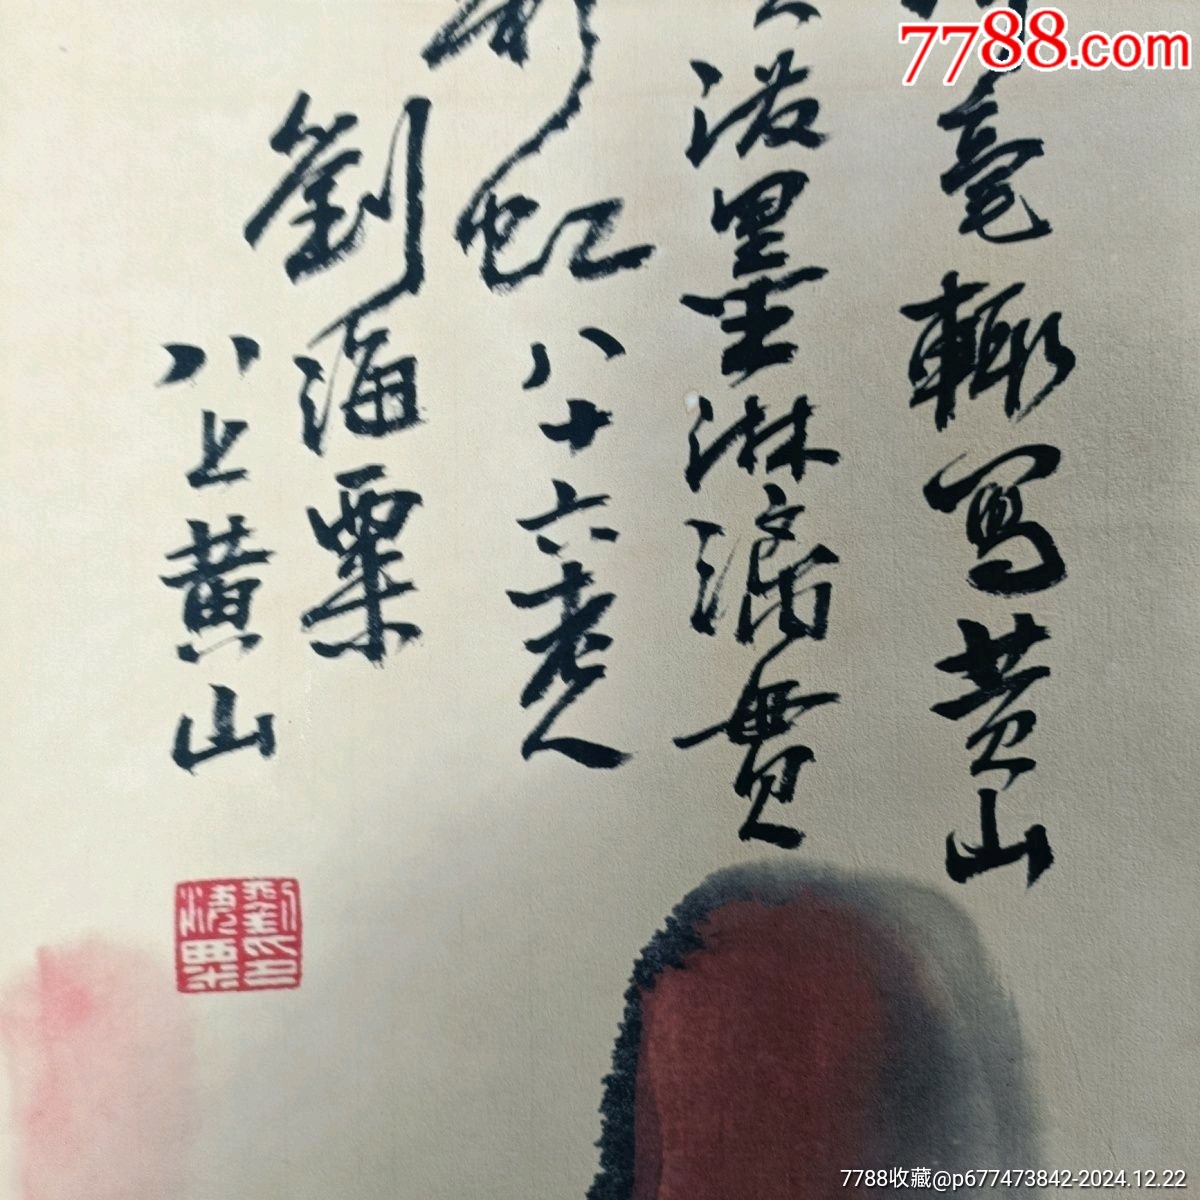 7788.com
毫輙寫黄山
潑墨淋漓貫
彩虹八十六老人
劉海粟
八上黄山
劉海粟印
7788收藏@p677473842-2024.12.22